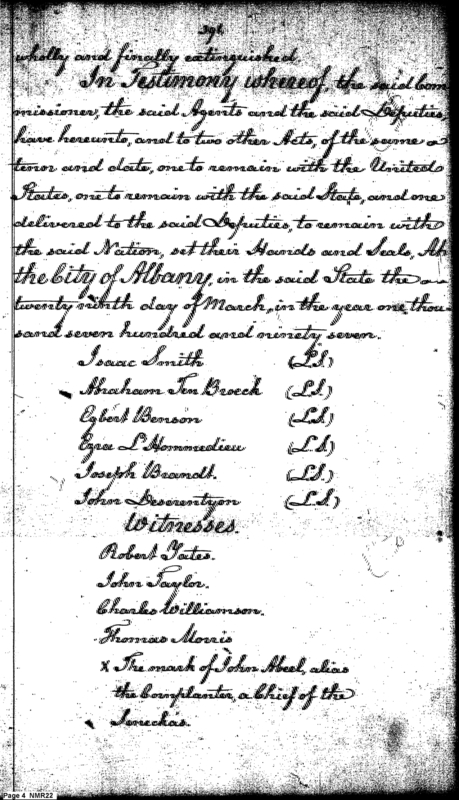 391.
wholly and finally extinguished.
In Testimony whereof, the said Com
missioner, the said Agents and the said Deputies,
have hereunto, and to two other Acts, of the same
tenor and date, one to remain with the United
States, one to remain with the said State, and one
delivered to the said Deputies, to remain with
the said Nation, set their Hands and Seals, At
the City of Albany, in the said State the
twenty ninth day of March, in the year one thou-
sand seven hundred and ninety seven.
Isaac Smith (L.S.)
Abraham Ten Broeck (L.S.)
Egbert Benson (L.S.)
Ezra L'Hommedieu (L.S)
Joseph Brandt. (L.S.)
John Deserentyon (L.S)
Witnesses.
Robert Yates.
John Taylor.
Charles Williamson.
Thomas Morris
x The mark of John Abeel, alias
the Cornplanter, a Chief of the
Seneckas.
Page 4 NMR22